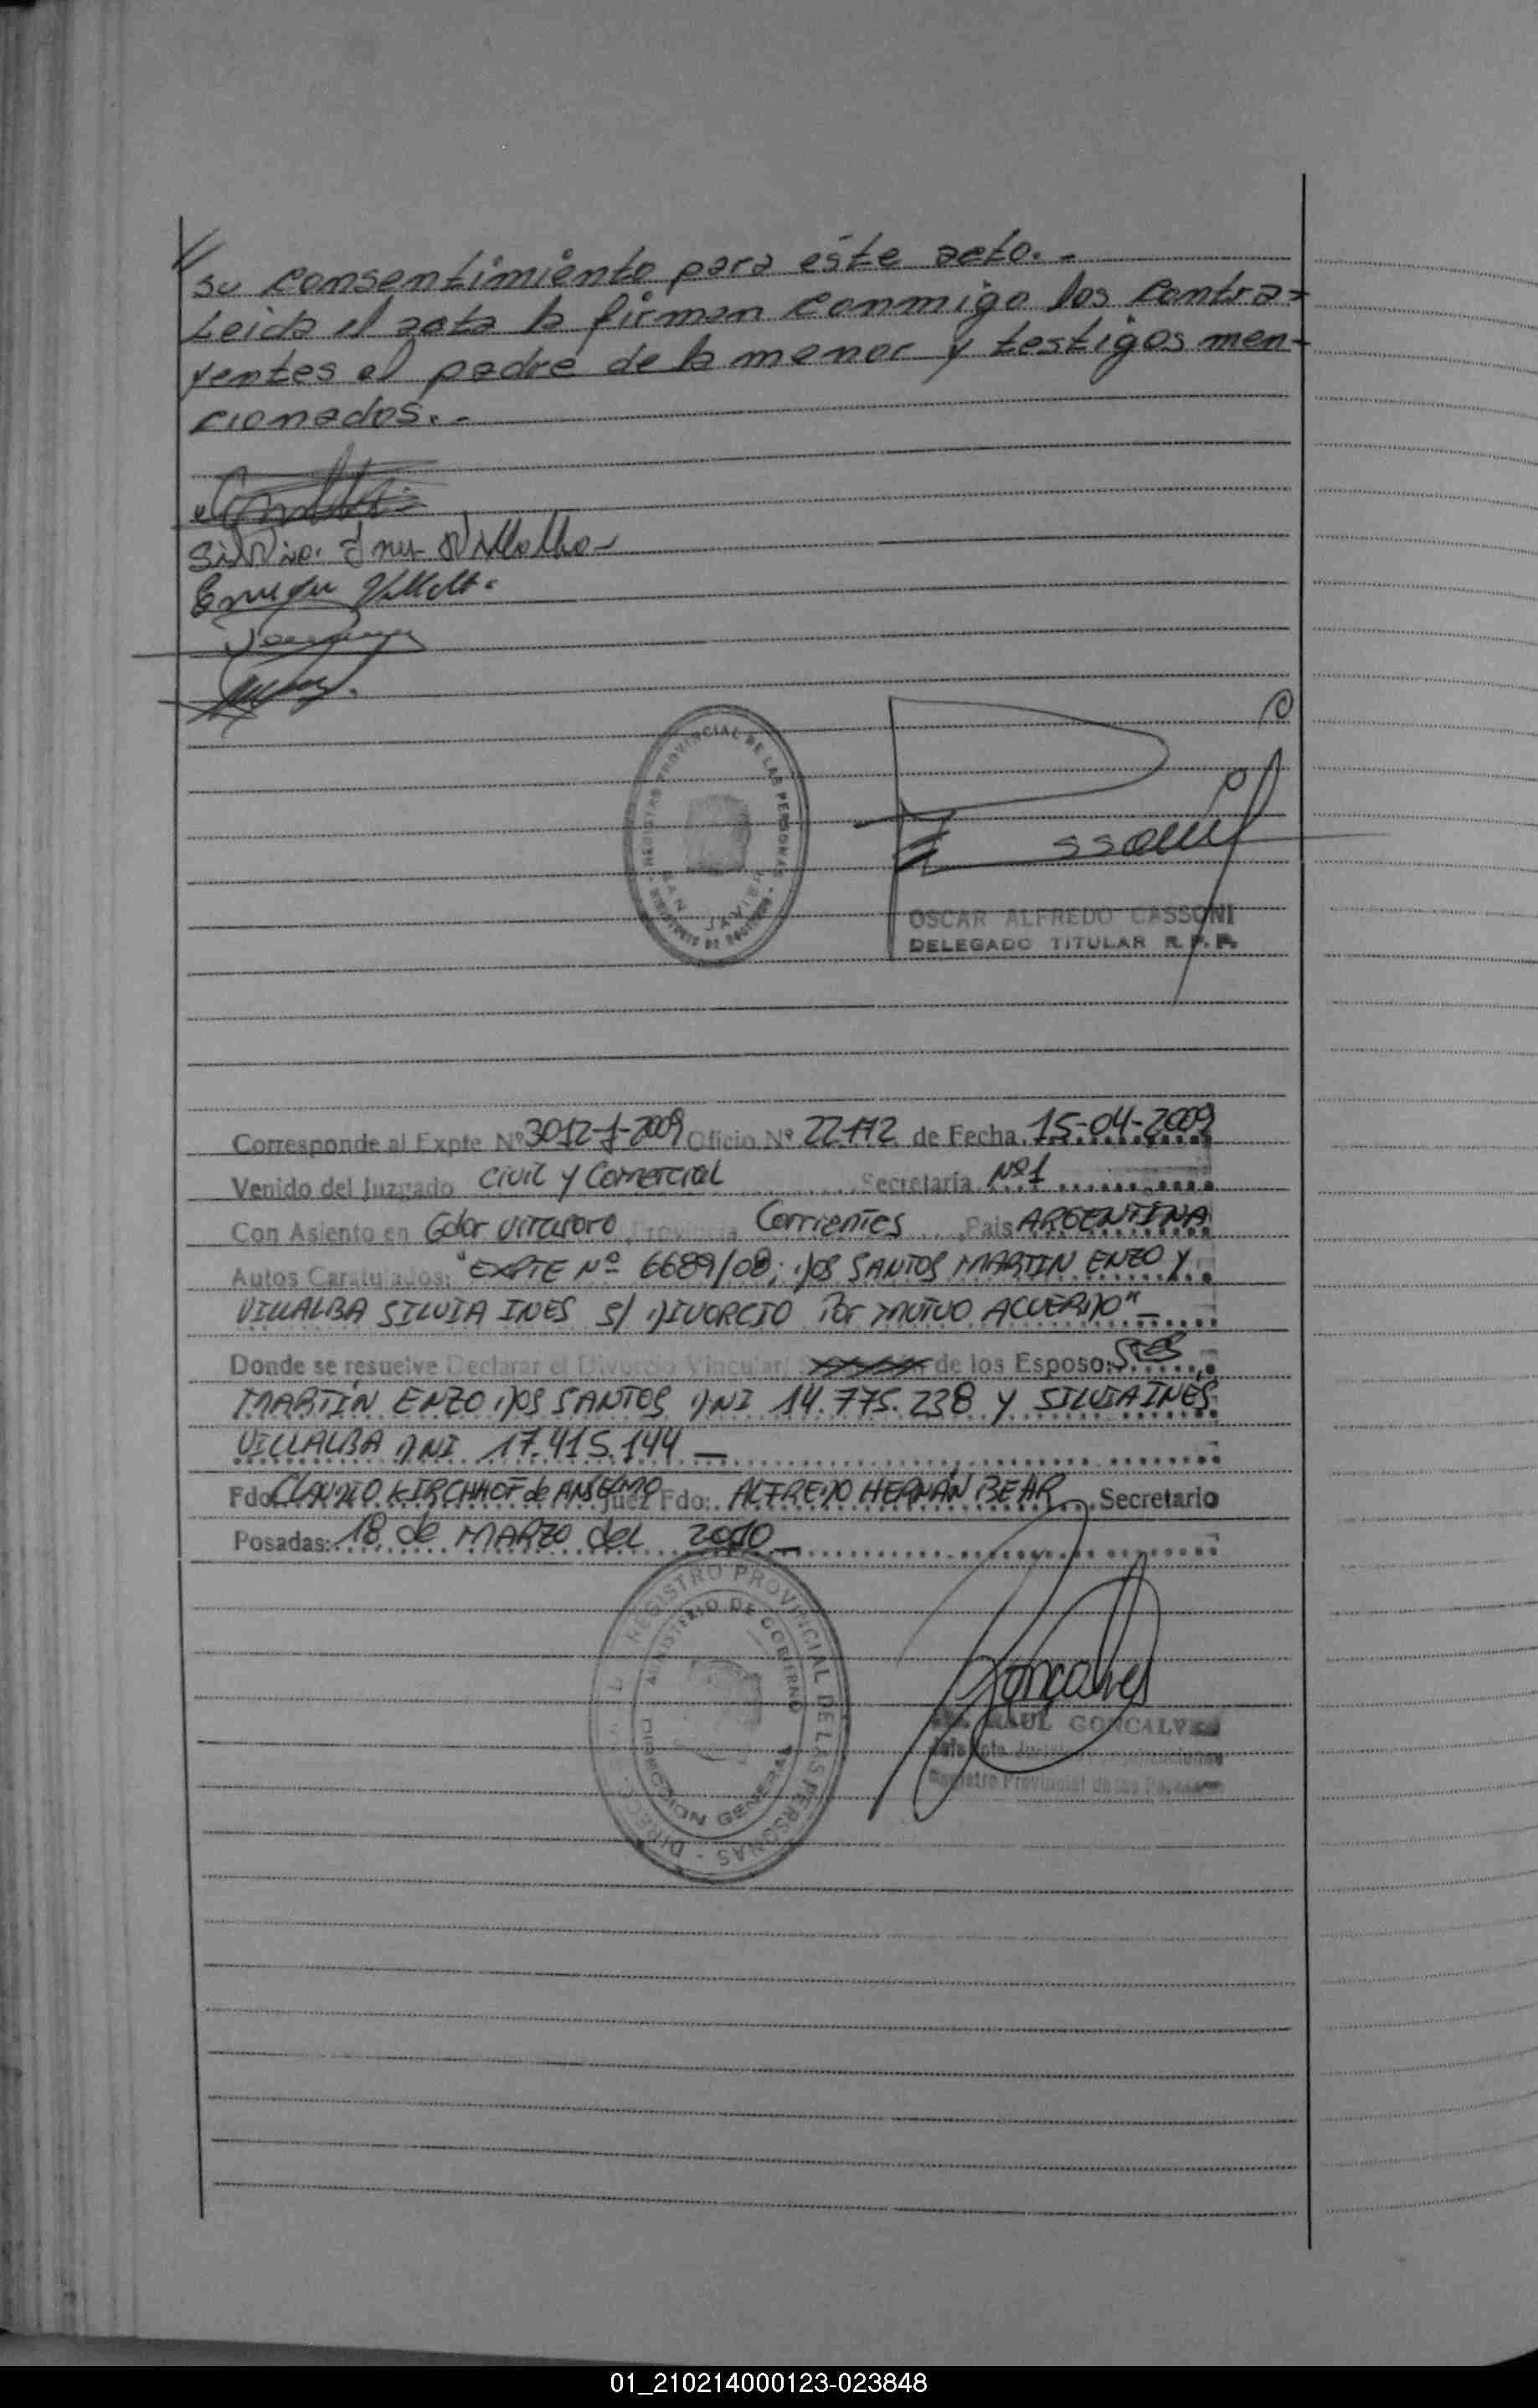 su consentimiento para este acto.-
Leida el acta la firman conmigo los contra-
yentes el padre de la menor y testigos men-
cionados.-
Silvia Ines Villalba
Villalba
REGISTRO PROVINCIAL DE LAS PERSONAS
SAN JAVIER
OSCAR ALFREDO CASSONI
DELEGADO TITULAR R.P.P.
Corresponde al Expte Nº 3012-J-2009 Oficio Nº 22112 de Fecha 15-04-2009
Venido del Juzgado Civil y Comercial Secretaría Nº1
Con Asiento en Gdor Virasoro, Provincia Corrientes, Pais ARGENTINA
Autos Caratulados: "EXPTE Nº 6689/08; DOS SANTOS MARTIN ENZO Y
VILLALBA SILVIA INES S/ DIVORCIO POR MUTUO ACUERDO"
Donde se resuelve Declarar el Divorcio Vincular/ de los Esposo: SRES
MARTÍN ENZO DOS SANTOS DNI 14.775.238 Y SILVIA INÉS
VILLALBA DNI 17.415.144
Fdo: CLAUDIO KIRCHHOF de ANSELMO Juez Fdo: ALFREDO HERNÁN BEAR Secretario
Posadas: 18 de MARZO del 2010
REGISTRO PROVINCIAL DE LAS PERSONAS
MINISTERIO DE GOBIERNO
DIRECCION GENERAL
Goncalves
RAUL GONCALVES
Registro Provincial de las Personas
01_210214000123-023848